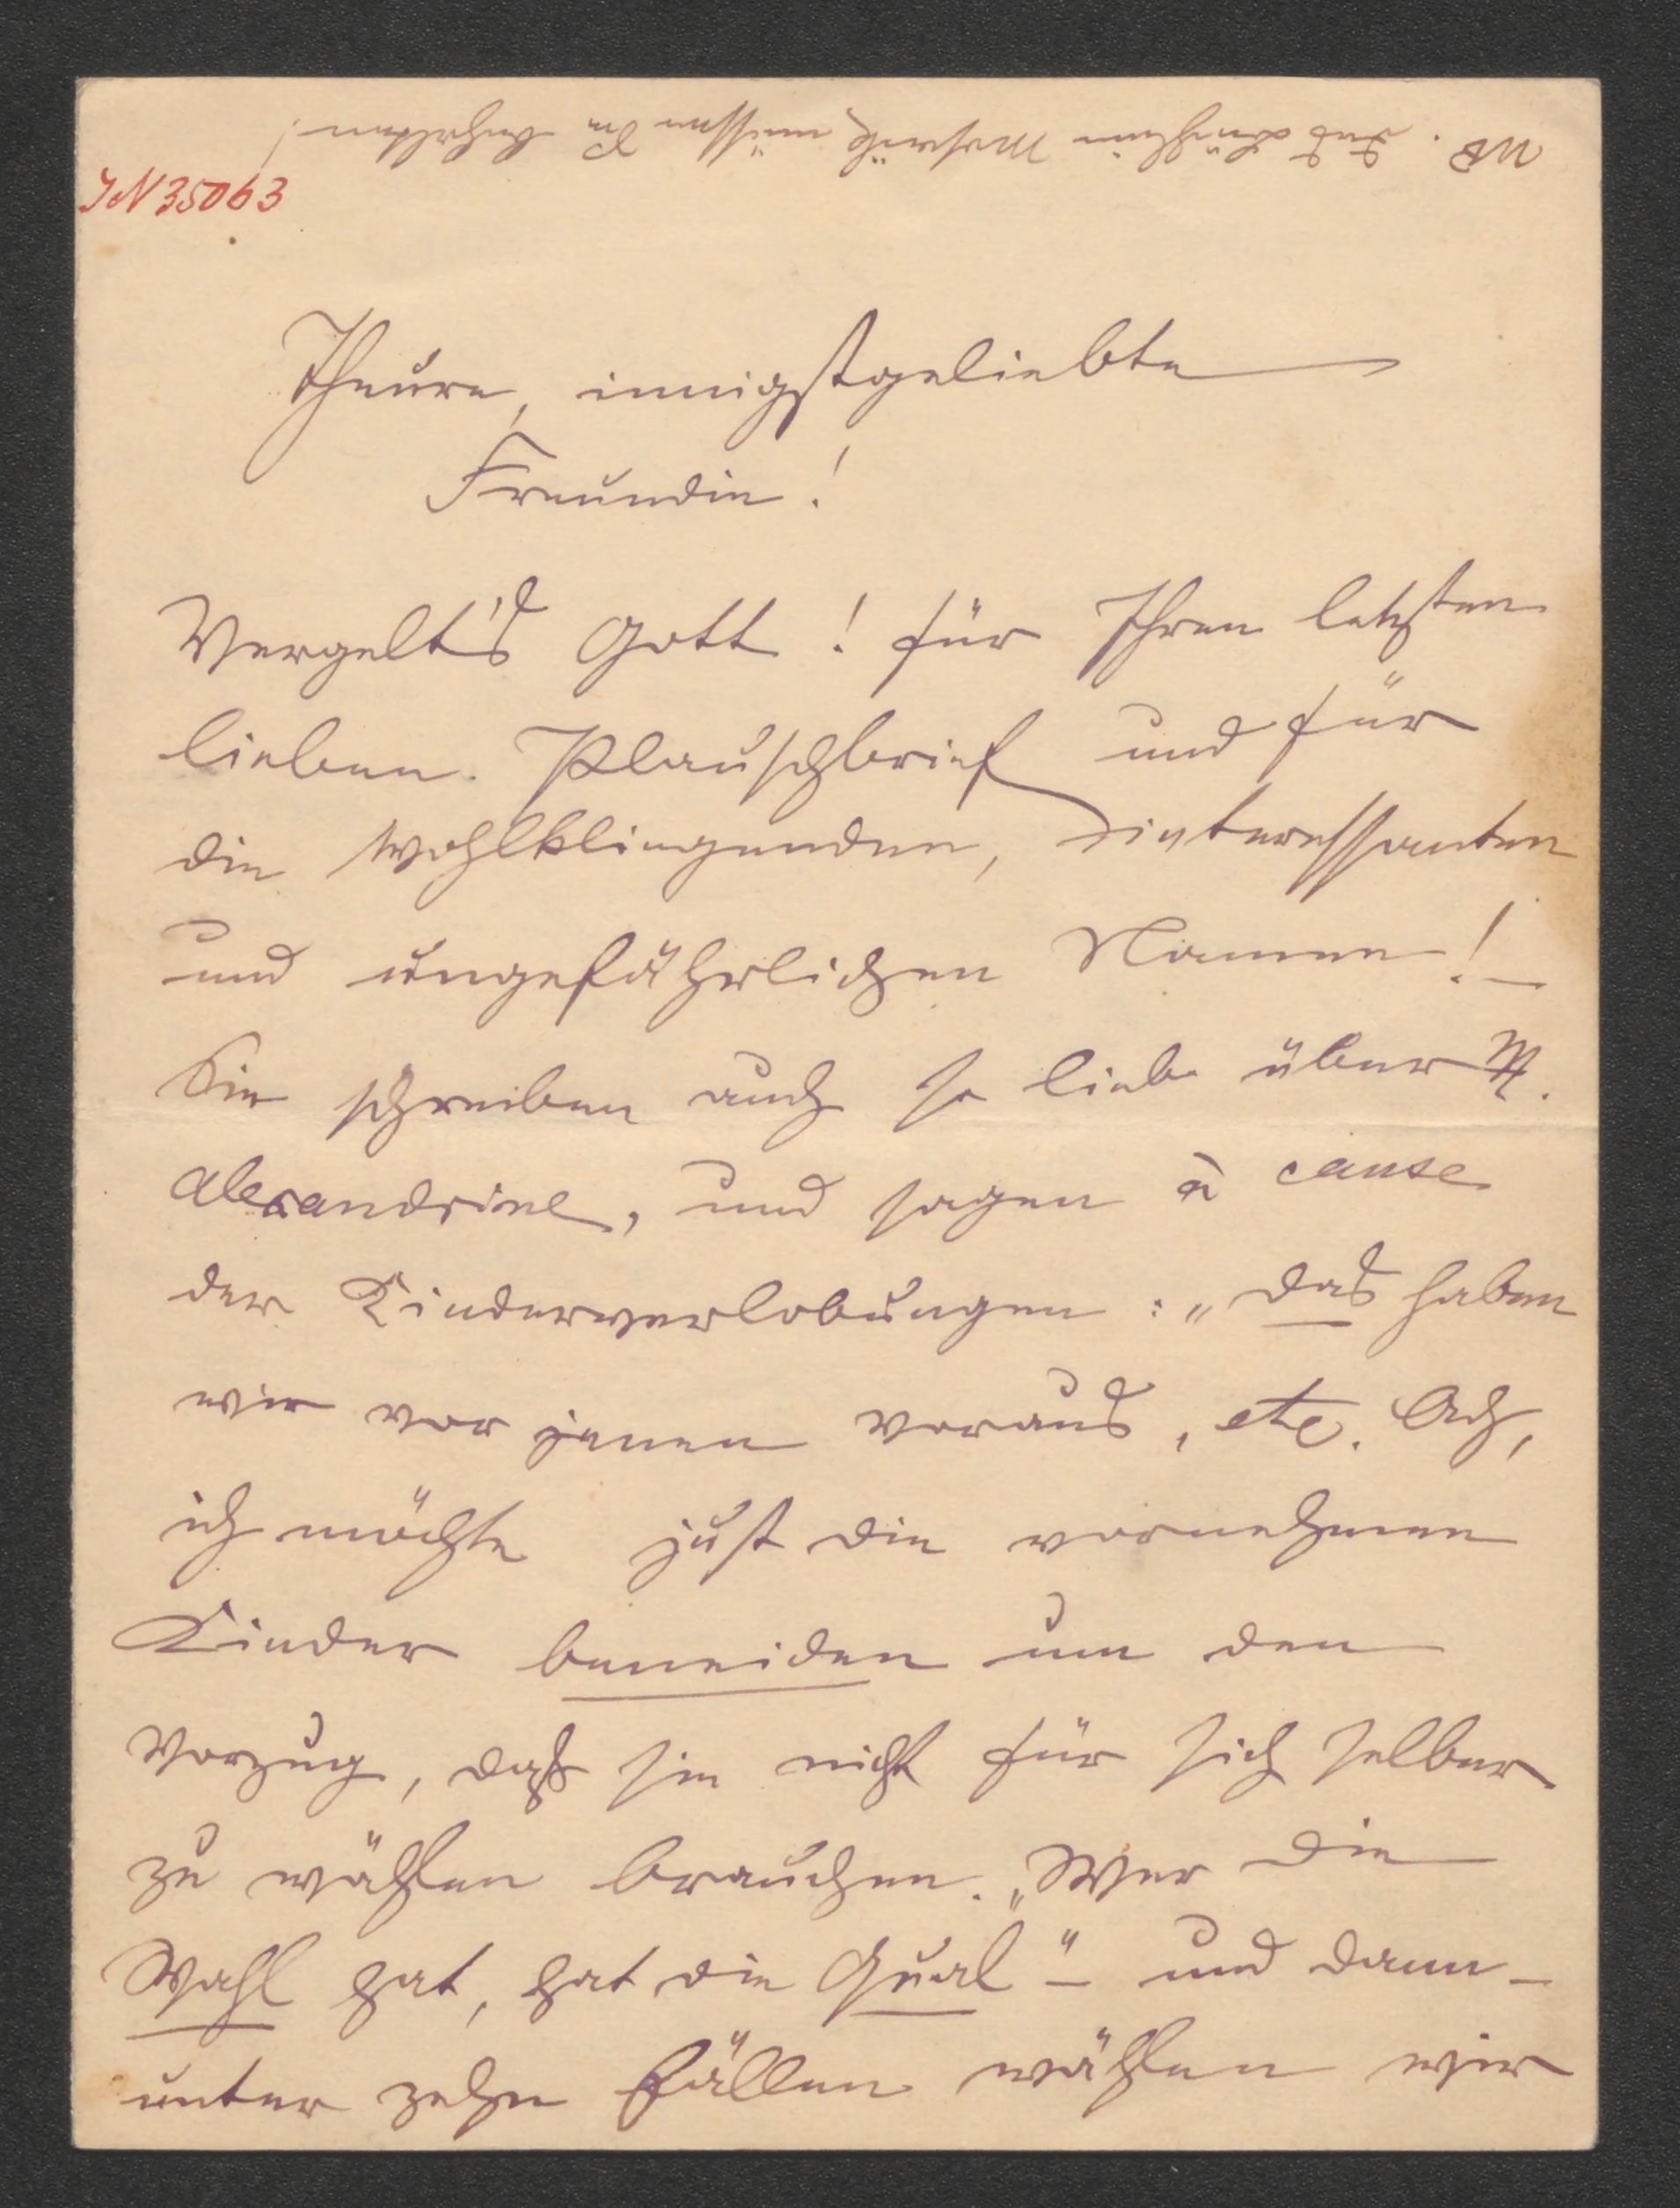 NB. Das Büchlein Mesnil müssen Sie behalten!
IN 35063
Theure, innigstgeliebte
Freundin!
Vergelt's Gott! für Ihren letzten
lieben Plauschbrief und für
die wohlklingenden, interessanten
und ungefährlichen Namen! —
Sie schreiben auch so lieb über M.
Alexandrine, und sagen à cause
der Kinderverlobungen: „das haben
wir vor jenen voraus, etc. Ach,
ich möchte just die vornehmen
Kinder beneiden um den
Vorzug, daß sie nicht für sich selber
zu wählen brauchen. „Wer die
Wahl hat, hat die Qual" – und dann –
unter zehn Fällen wählen wir